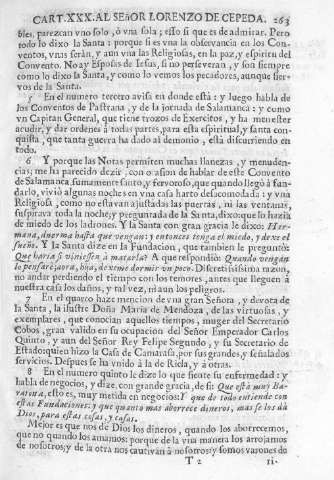 CART. XXX. AL SEñOR LORENZO DE CEPEDA. 263
bles, parezcan vno solo, ò vna sola; esso si que es de admirar. Pero
todo lo dixo la Santa: porque si es vna la observancia en los Con-
ventos, vnas seràn, y aun vna las Religiosas, en la paz, y espiritu del
Convento. No ay Esposas de Iesus, si no perseveran, y son siempre
como lo dixo la Santa, y como lo vemos los pecadores, aunque sier-
vos de la Santa.
5 En el numero tercero avisa en donde està: y luego habla de
los Conventos de Pastrana, y de la jornada de Salamanca: y como
vn Capitan General, que tiene trozos de Exercitos, y ha menester
acudir, y dar ordenes à todas partes, para esta espiritual, y santa con-
quista, que tanta guerra ha dado al demonio, està discurriendo en
todo.
6 Y porque las Notas permiten muchas llanezas, y menuden-
cias; me ha parecido dezir, con ocasion de hablar de este Convento
de Salamanca sumamente santo, y fervoroso, que quando llegò à fun-
darlo, viviò algunas noches en vna casa harto desacomodada: y vna
Religiosa, como no estavan ajustadas las puertas, ni las ventanas,
suspirava toda la noche; y preguntada de la Santa, dixo: que lo hazia
de miedo de los ladrones. Y la Santa con gran gracia le dixo: Her-
mana, duerma hasta que vengan: y entonces tenga el miedo, y dexe el
sueño. Y la Santa dize en la Fundacion, que tambien le preguntò:
Que haria si viniessen à matarla? A que respondiò: Quando vengan
lo pensarè; aora, hija, dexeme dormir vn poco. Discretissima razon,
no andar perdiendo el tiempo con los temores, antes que lleguen à
nuestra casa los daños, y tal vez, ni aun los peligros.
7 En el quarto haze mencion de vna gran Señora, y devota de
la Santa, la ilustre Doña Maria de Mendoza, de las virtuosas, y
exemplares, que conocian aquellos tiempos, muger del Secretario
Cobos, gran valido en su ocupacion del Señor Emperador Carlos
Quinto, y aun del Señor Rey Felipe Segundo, y su Secretario de
Estado: quien hizo la Casa de Camarasa, por sus grandes, y señalados
servicios. Despues se ha vnido à la de Ricla, y à otras.
8 En el numero quinto le dize lo que siente su enfermedad: y
habla de negocios, y dize con grande gracia, de si: Que està muy Ba-
ratona, esto es, muy metida en negocios: Y que de todo entiende con
estas Fundaciones: y que quanto mas aborrece dineros, mas se los dà
Dios, para estas casas, y cosas.
Mejor es que nos de Dios los dineros, quando los aborrecemos,
que no quando los amamos: porque de la vna manera los arrojamos
de nosotros; y de la otra nos cautivan à nosotros; y somos varones de
T 2 ri-